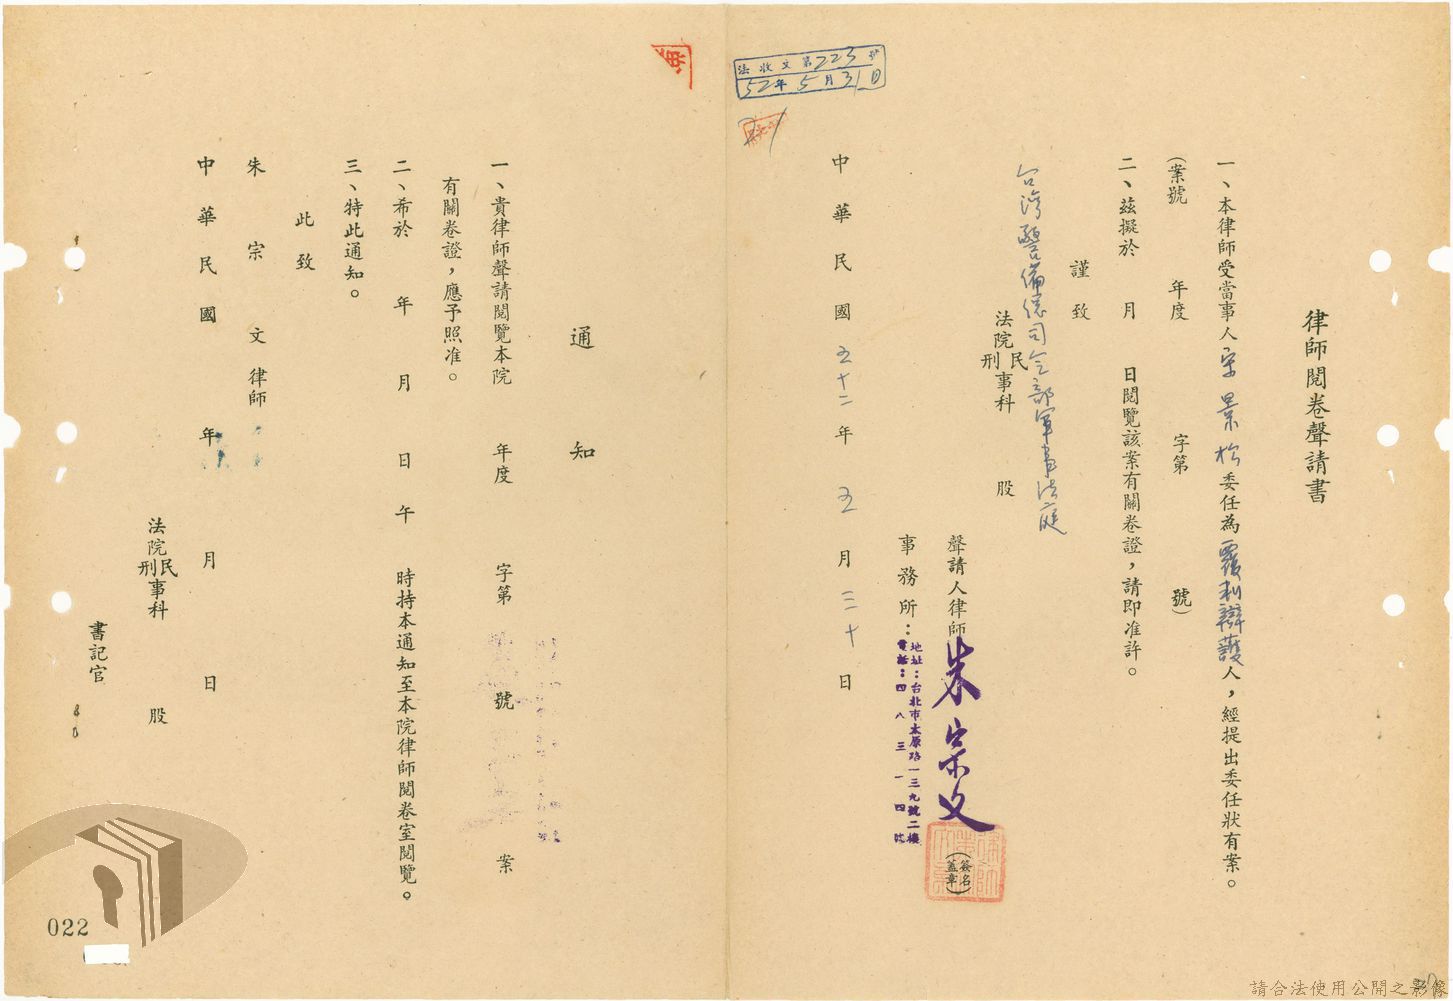 律師閱卷聲請書
一、本律師受當事人宋景松委任為覆判辯護人，經提出委任狀有案。
(案號　年度　字第　號)
二、茲擬於　月　日閱覽該案有關卷證，請即准許。
謹致
台灣警備總司令部軍事法庭
法院民刑事科　股
聲請人律師朱宗文(簽名蓋章)
事務所：地址：台北市太原路一三九號二樓
電話：四八三一四號
中華民國五十二年五月三十日
法收文第223號
52年5月31日
通知
一、貴律師聲請閱覽本院　年度　字第　號　案
有關卷證，應予照准。
二、希於　年　月　日　午　時持本通知至本院律師閱卷室閱覽。
三、特此通知。
此致
朱宗文律師
中華民國　年　月　日
法院民刑事科　股
書記官
022
請合法使用公開之影像